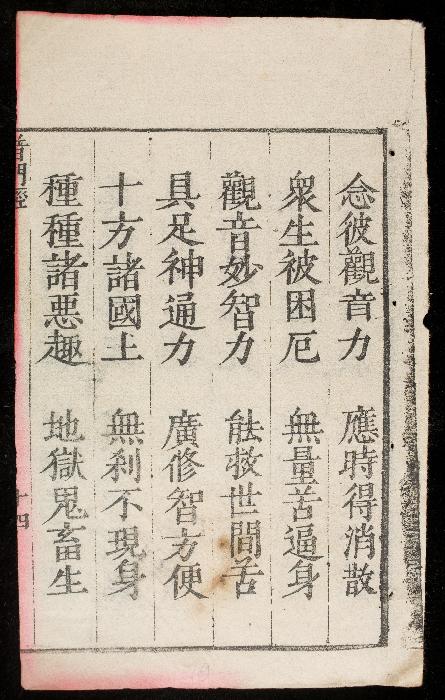 念彼觀音力 應時得消散
衆生被困厄 無量苦逼身
觀音妙智力 能救世間苦
具足神通力 廣修智方便
十方諸國土 無刹不現身
種種諸悪趣 地獄鬼畜生
普門經 十四